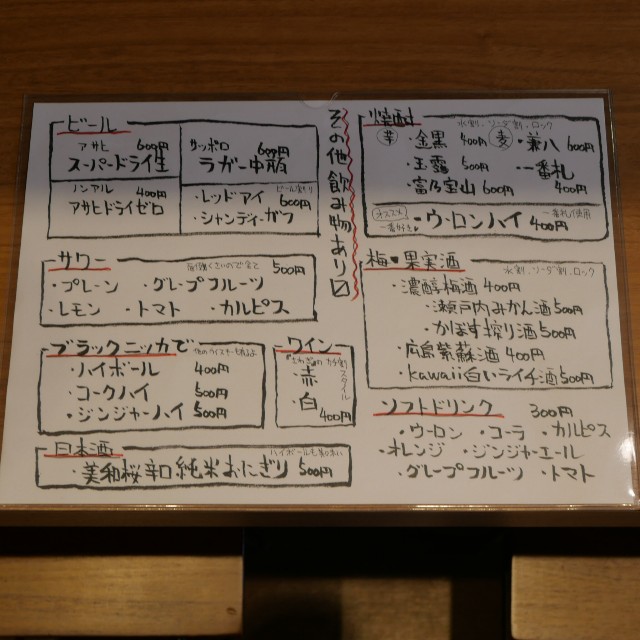 ビール
アサヒ 600円
スーパードライ生
サッポロ 600円
ラガー中瓶
ノンアル 400円
アサヒドライゼロ
・レッド・アイ
・シャンディーガフ
600円
その他飲み物あり〼
焼酎
水割・ソーダ割・ロック
芋 ・金黒 400円
・玉露 500円
・富乃宝山 600円
麦 ・兼八 600円
・一番札 400円
オススメ
一番好き
・ウーロンハイ 400円
一番札使用
サワー
500円
・プレーン ・グレープフルーツ
・レモン ・トマト ・カルピス
梅・果実酒
水割・ソーダ割・ロック
・濃醇梅酒 400円
・瀬戸内みかん酒 500円
・かぼす搾り酒 500円
・広島紫蘇酒 400円
・kawaii白いライチ酒 500円
ブラックニッカで
・ハイボール 400円
・コークハイ 500円
・ジンジャーハイ 500円
ワイン
・赤
・白
400円
スタイル
日本酒
・美和桜辛口純米おにぎり 500円
ソフトドリンク 300円
・ウーロン ・コーラ ・カルピス
・オレンジ ・ジンジャーエール
・グレープフルーツ ・トマト